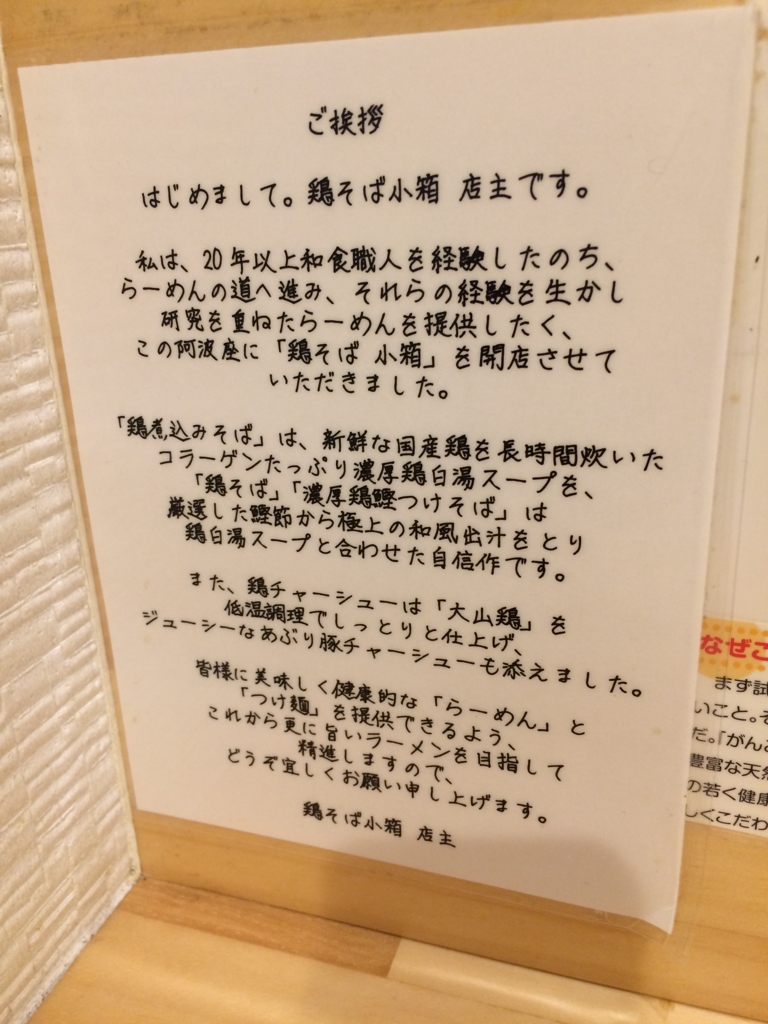 ご挨拶
はじめまして。鶏そば小箱 店主です。
私は、20年以上和食職人を経験したのち、
らーめんの道へ進み、それらの経験を生かし
研究を重ねたらーめんを提供したく、
この阿波座に「鶏そば 小箱」を開店させて
いただきました。
「鶏煮込みそば」は、新鮮な国産鶏を長時間炊いた
コラーゲンたっぷり濃厚鶏白湯スープを、
「鶏そば」「濃厚鶏鰹つけそば」は
厳選した鰹節から極上の和風出汁をとり
鶏白湯スープと合わせた自信作です。
また、鶏チャーシューは「大山鶏」を
低温調理でしっとりと仕上げ、
ジューシーなあぶり豚チャーシューも添えました。
皆様に美味しく健康的な「らーめん」と
「つけ麺」を提供できるよう、
これから更に旨いラーメンを目指して
精進しますので、
どうぞ宜しくお願い申し上げます。
鶏そば小箱 店主
なぜこ
まず試
いこと。そ
だ。「がんこ
豊富な天然
の若く健康
しくこだわ